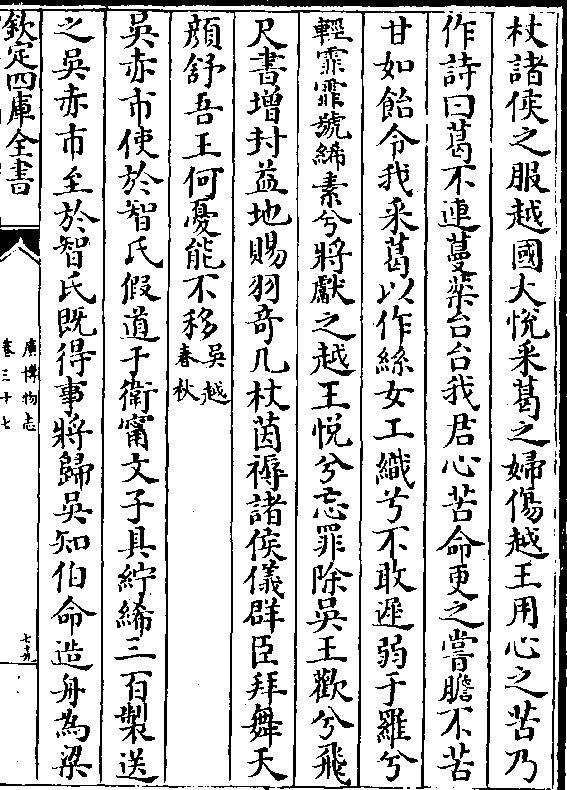 杖諸侯之服越國大悅采葛之婦傷越王用心之苦乃
作詩曰葛不連蔓棻台台我君心苦命更之嘗膽不苦
甘如飴令我采葛以作絲女工織兮不敢遲弱于羅兮
輕霏霏號絺素兮將獻之越王悅兮忘罪除吳王歡兮飛
尺書增封益地賜羽奇几杖茵褥諸侯儀群臣拜舞天
顔舒吾王何憂能不移吳越春秋
吳赤市使於智氏假道于衛甯文子具紵絺三百製送
之吳赤市至於智氏既得事將歸吳知伯命造舟為梁
欽定四庫全書
廣博物志
卷三十七
七十九